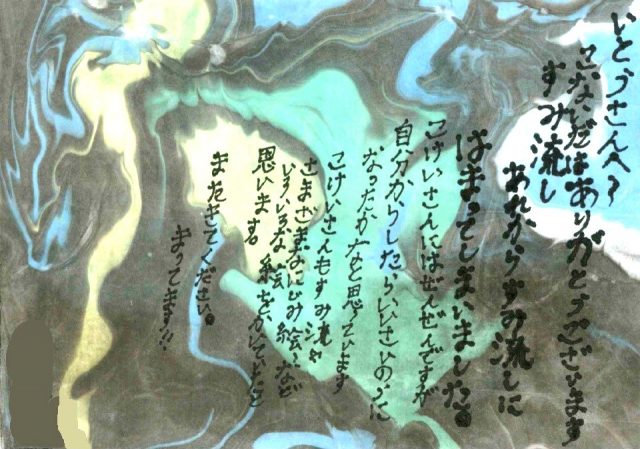 いとうさんへ
こないだはありがとうございます
すみ流し
あれからすみ流しに
はまってしまいました。
こけいさんにはぜんぜんですが
自分からしたら
なったかなと思っています
こけいさんもすみ流し
さまざまなにじみ絵など
いろいろな絵をかいていたと
思います。
またきてください。
まってます!!